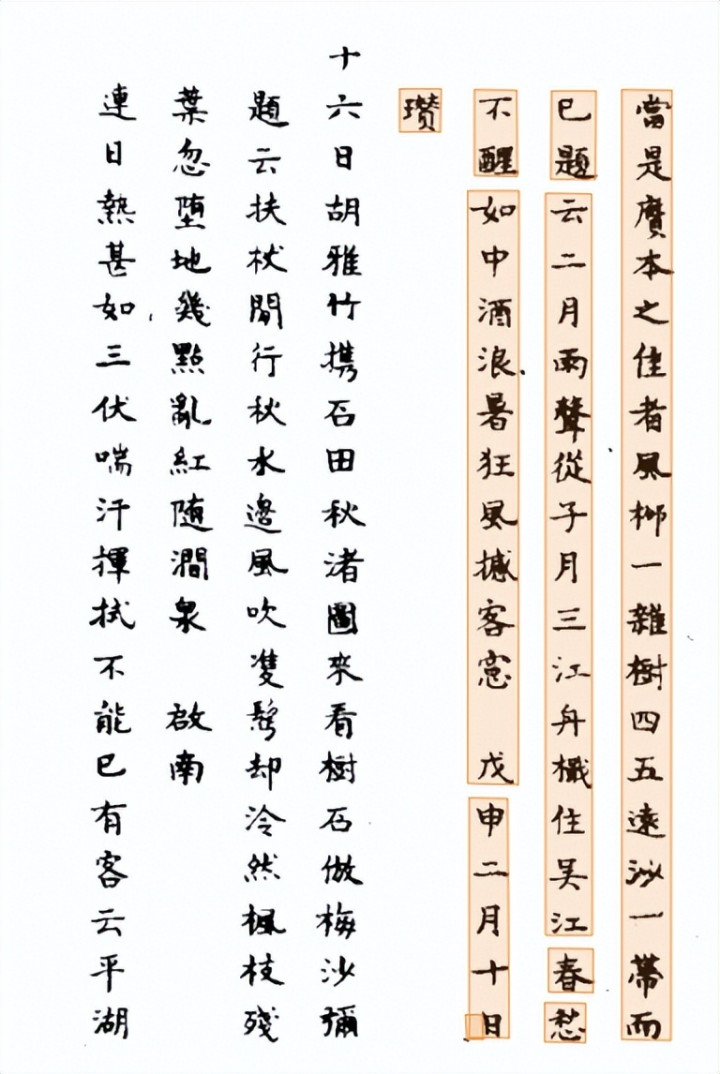 當是贋本之佳者風柳一雜樹四五遠沙一帶而
已題云二月雨聲從子月三江舟檝住吴江春愁
不醒如中酒浪暑狂風撼客窓　戊申二月十日
瓚
十六日胡雅竹携石田秋渚圖來看樹石倣梅沙彌
題云扶杖閒行秋水邊風吹雙鬓却泠然楓枝殘
葉忽墮地幾點亂紅随澗泉　啟南
連日熱甚如三伏喘汗揮拭不能已有客云平湖